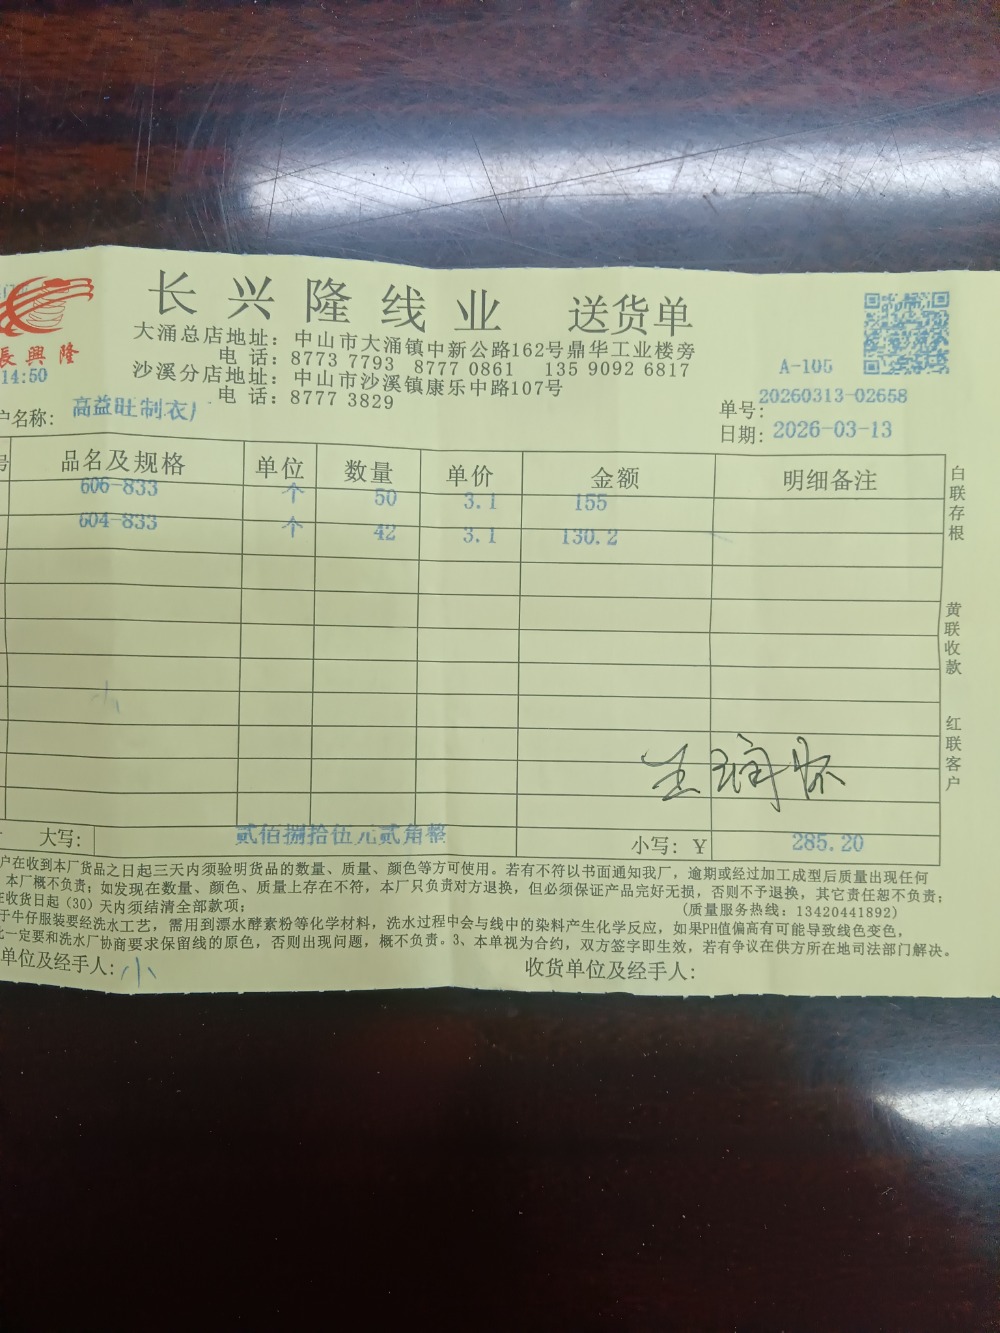 长兴隆线业 送货单
大涌总店地址：中山市大涌镇中新公路162号鼎华工业楼旁
电 话：8773 7793 8777 0861 135 9092 6817
沙溪分店地址：中山市沙溪镇康乐中路107号
电 话：8777 3829
長興隆
14:50
A-105
单号：20260313-02658
日期：2026-03-13
户名称：高益旺制衣厂
号 品名及规格 单位 数量 单价 金额 明细备注
606-833 个 50 3.1 155
604-833 个 42 3.1 130.2
白联存根
黄联收款
红联客户
大写： 贰佰捌拾伍元贰角整 小写：Y 285.20
户在收到本厂货品之日起三天内须验明货品的数量、质量、颜色等方可使用。若有不符以书面通知我厂，逾期或经过加工成型后质量出现任何
本厂概不负责；如发现在数量、颜色、质量上存在不符，本厂只负责对方退换，但必须保证产品完好无损，否则不予退换，其它责任恕不负责；
在收货日起（30）天内须结清全部款项； （质量服务热线：13420441892）
于牛仔服装要经洗水工艺，需用到漂水酵素粉等化学材料，洗水过程中会与线中的染料产生化学反应，如果PH值偏高有可能导致线色变色，
比一定要和洗水厂协商要求保留线的原色，否则出现问题，概不负责。3、本单视为合约，双方签字即生效，若有争议在供方所在地司法部门解决。
单位及经手人：小 收货单位及经手人：